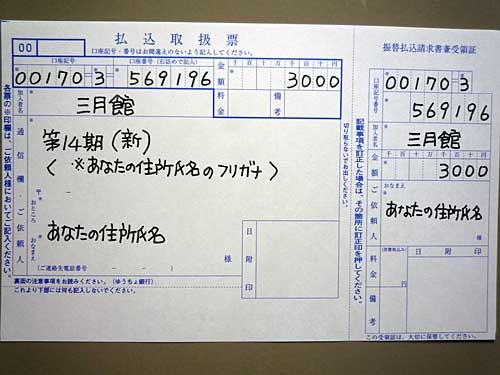 00
払込取扱票
口座記号・番号はお間違えのないよう記入してください。
口座記号 口座番号(右詰めで記入)
00170-3- 569196
金額 千 百 十 万 千 百 十 円
3000
加入者名 三月館
料金 備考
通信欄・ご依頼人
第14期(新)
( ※あなたの住所氏名のフリガナ )
〒 - -
おところ
おなまえ
あなたの住所氏名
様
(ご連絡先電話番号 - - )
日附印
裏面の注意事項をお読みください。(ゆうちょ銀行)
これより下部には何も記入しないでください。
各票の※印欄は、ご依頼人様においてご記入ください。
切り取らないでお出しください。
記載事項を訂正した場合は、その箇所に訂正印を押してください。
振替払込請求書兼受領証
口座記号番号
00170-3
569196
加入者名 三月館
金額 千 百 十 万 千 百 十 円
3000
ご依頼人
おなまえ
あなたの住所氏名
様
料金
(消費税込み)
日附印
備考
この受領証は、大切に保管してください。